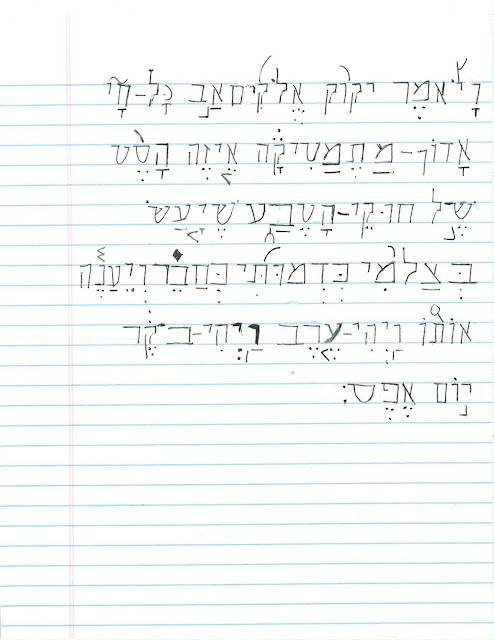 וָיֹּאמֶר יקוק אֱלֹקִים אַב כָּל-חָי
אָדוֹן-מַתֶמַטִיקָה אֵיזֶה הָסֵט
שֶׁל חוּקֵי-הַטֶבַע שֶׁיַעַשׂ
בְּצַלְמִי כִּדְמוּתִי
אוֹתוֹ וַיְהִי-עֶרֶב וַיְהִי-בֹקֶר
יוֹם אֶפֶס׃